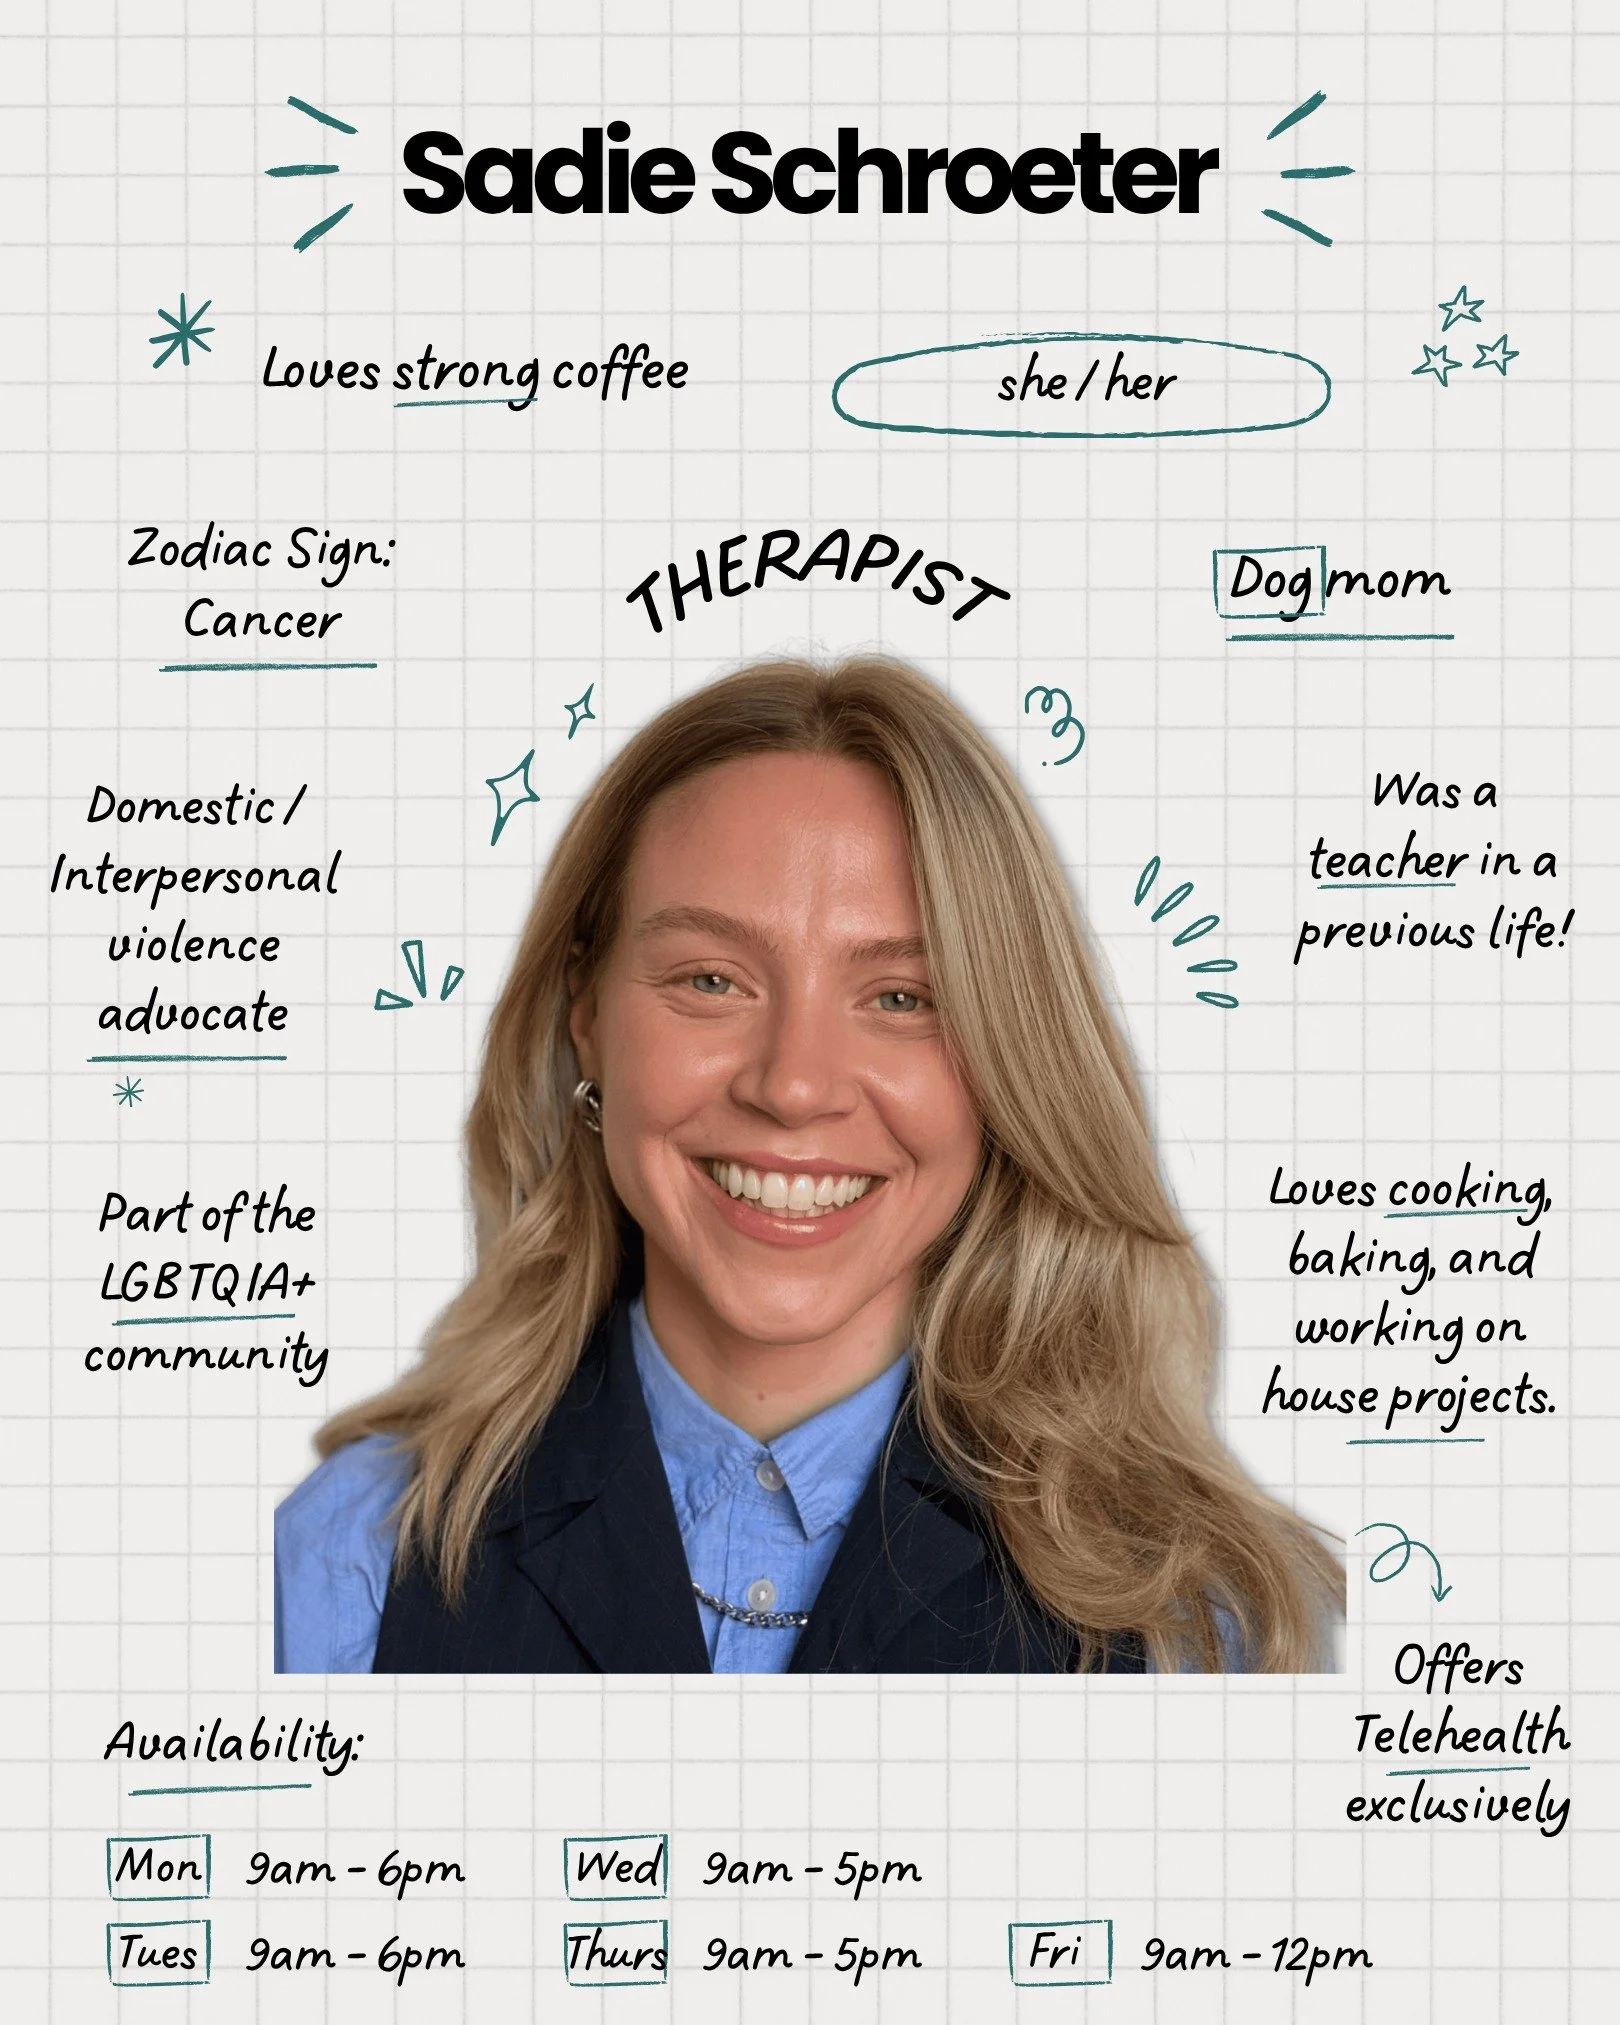 Sadie Schroeter
Loves strong coffee
she / her
Zodiac Sign:
Cancer
THERAPIST
Dog mom
Domestic /
Interpersonal
violence
advocate
Was a
teacher in a
previous life!
Part of the
LGBTQIA+
community
Loves cooking,
baking, and
working on
house projects.
Offers
Telehealth
exclusively
Availability:
Mon 9am - 6pm
Wed 9am - 5pm
Tues 9am - 6pm
Thurs 9am - 5pm
Fri 9am - 12pm